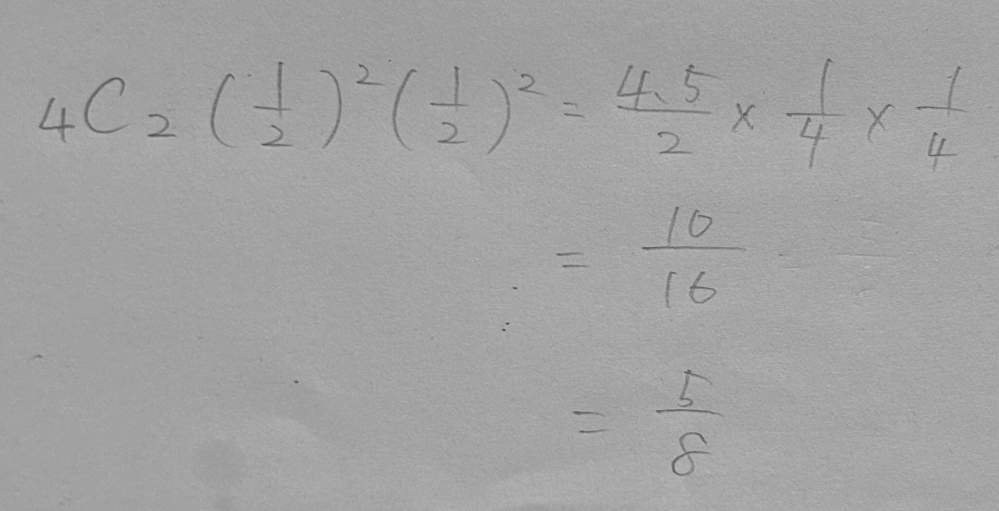 ₄C₂ (1/2)² (1/2)² = 4.5/2 × 1/4 × 1/4
= 10/16
= 5/8